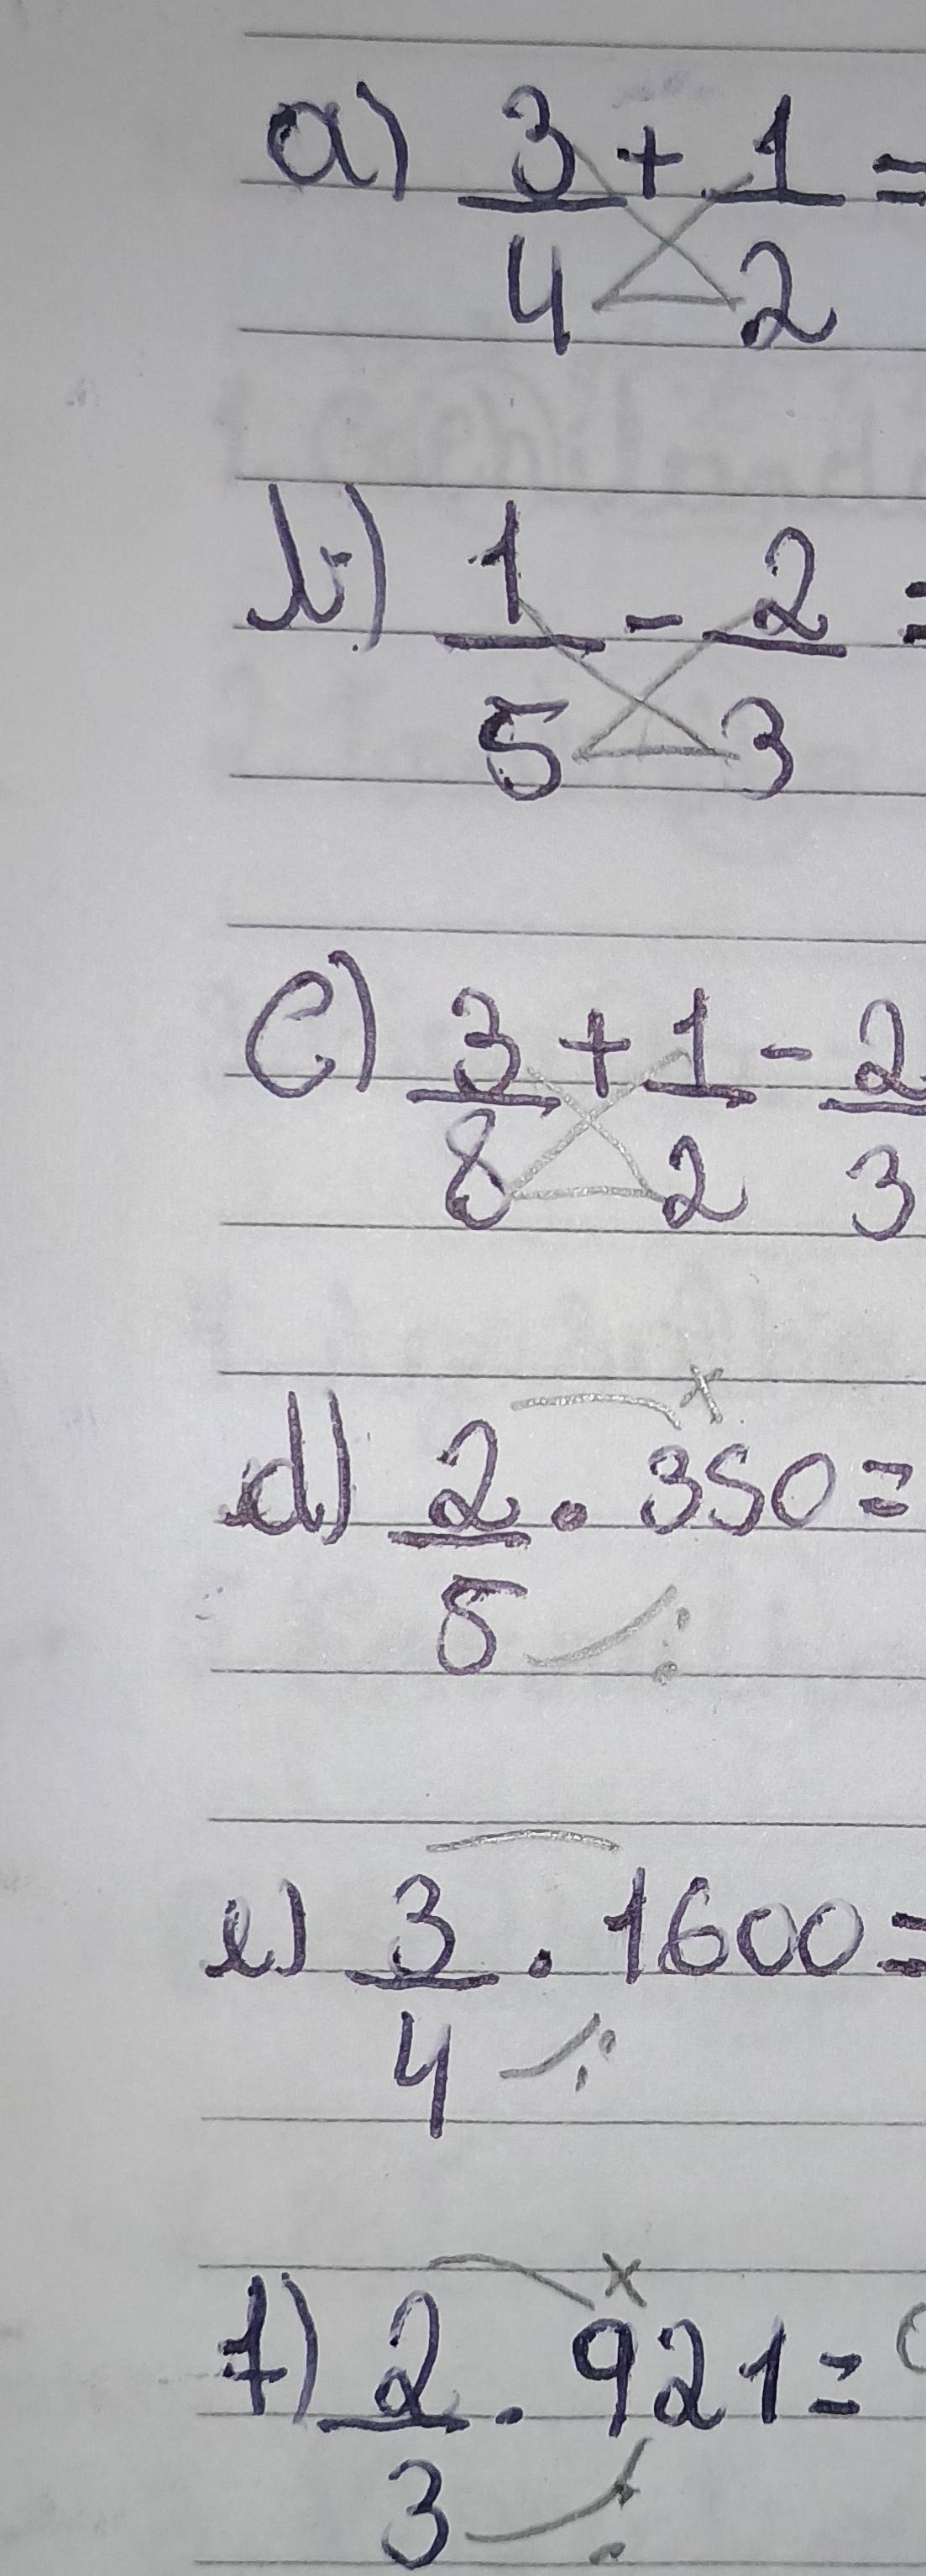 a) 3/4 + 1/2 =
b) 1/5 - 2/3 =
c) 3/8 + 1/2 - 2/3
d) 2/5 . 350 =
x
:
e) 3/4 . 1600 =
:
f) 2/3 . 921 =
x
: